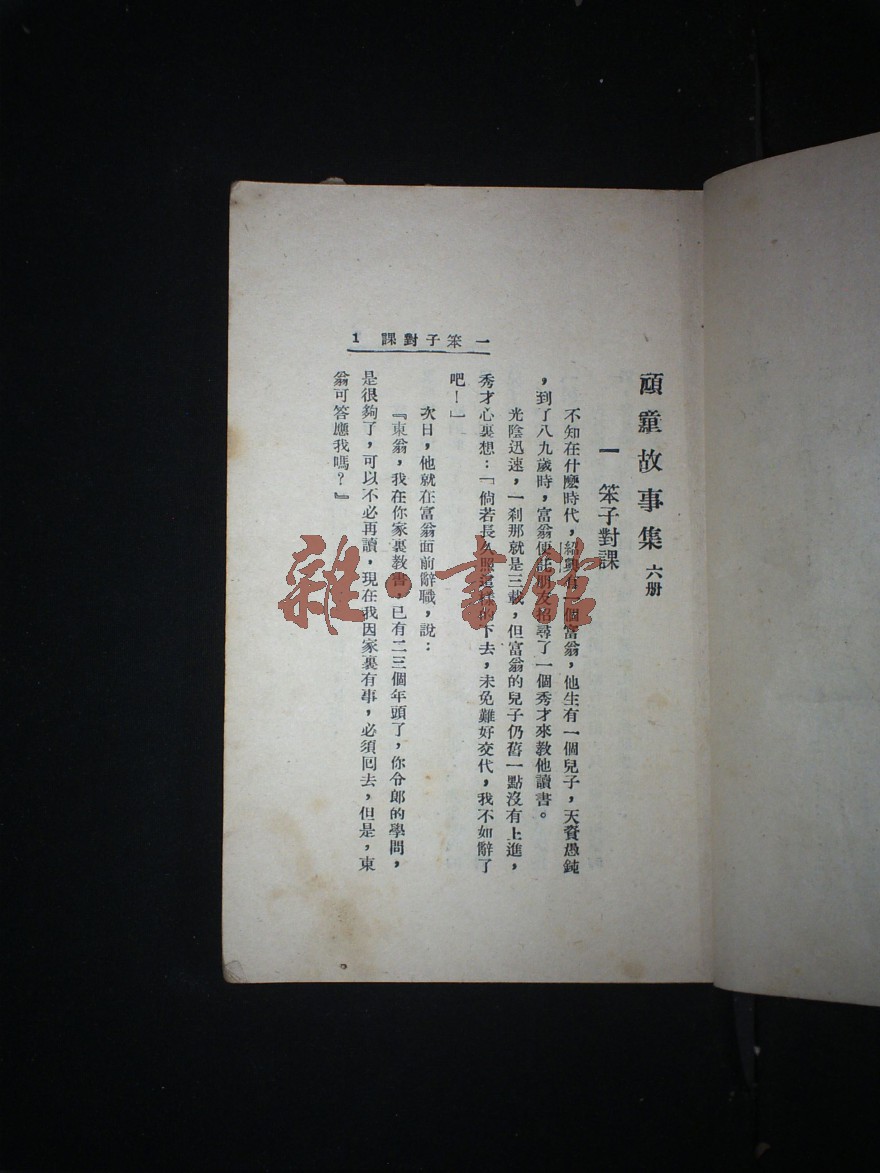 頑童故事集 六册
一 笨子對課
不知在什麼時代，紹興有一個富翁，他生有一個兒子，天資愚鈍
，到了八九歲時，富翁便託朋友招尋了一個秀才來教他讀書。
光陰迅速，一刹那就是三載，但富翁的兒子仍舊一點沒有上進，
秀才心裏想：「倘若長久照這樣的下去，未免難好交代，我不如辭了
吧！」
次日，他就在富翁面前辭職，說：
『東翁，我在你家裏教書，已有二三個年頭了，你令郎的學問，
是很夠了，可以不必再讀，現在我因家裏有事，必須囘去，但是，東
翁可答應我嗎？』
一 笨子對課 1
雜·書館